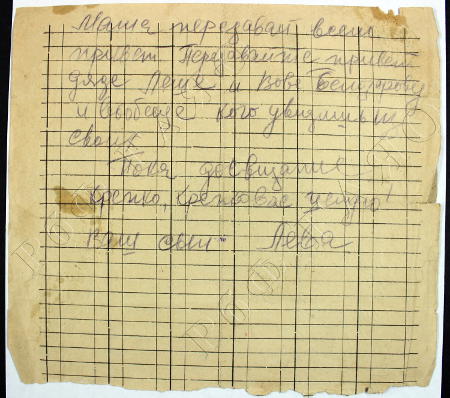 Маша передавай всем
привет. Передавайте привет
дяде Леше и Вове
и вообще кого увидишь из
своих
Пока досвидание
Крепко, крепко вас целую!
Ваш сын Лева